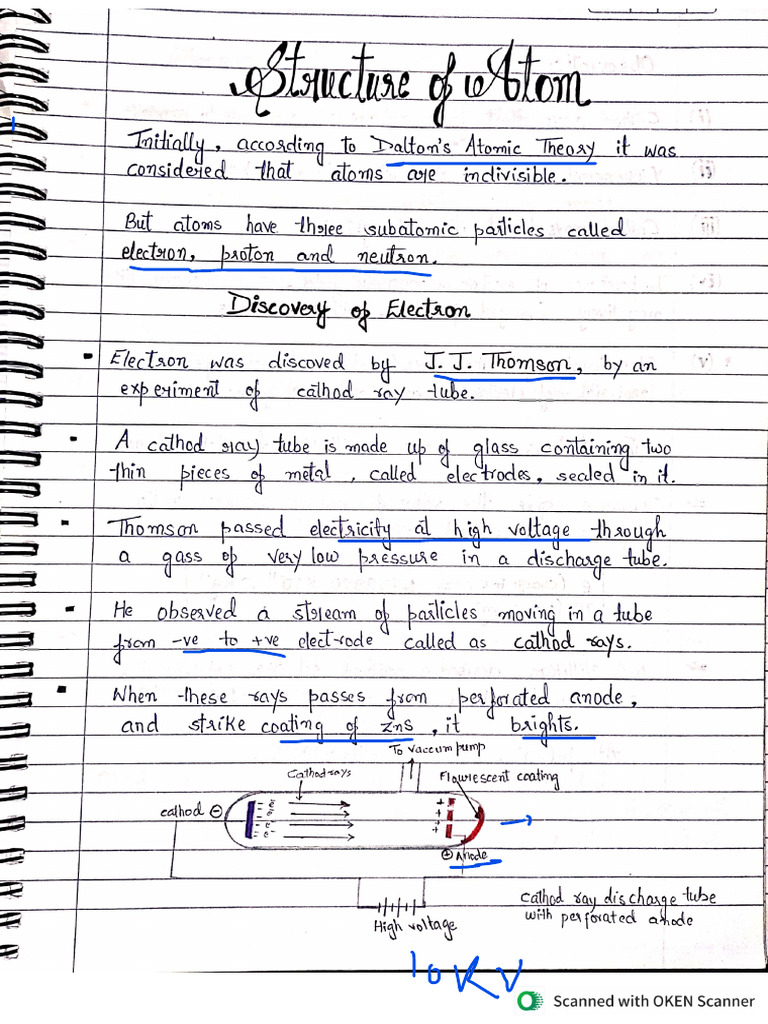 Structure of Atom
Initially, according to Dalton's Atomic Theory it was
considered that atoms are indivisible.
But atoms have three subatomic particles called
electron, proton and neutron.
Discovery of Electron
- Electron was discoved by J. J. Thomson, by an
experiment of cathod ray tube.
- A cathod ray tube is made up of glass containing two
thin pieces of metal, called electrodes, sealed in it.
- Thomson passed electricity at high voltage through
a gass of very low pressure in a discharge tube.
- He observed a stream of particles moving in a tube
from -ve to +ve electrode called as cathod rays.
- When these rays passes from perforated anode,
and strike coating of zns, it brights.
To vaccum pump
Cathod rays
Flourescent coating
cathod ⊖
⊕ Anode
High voltage
cathod ray discharge tube
with perforated anode
10KV
Scanned with OKEN Scanner